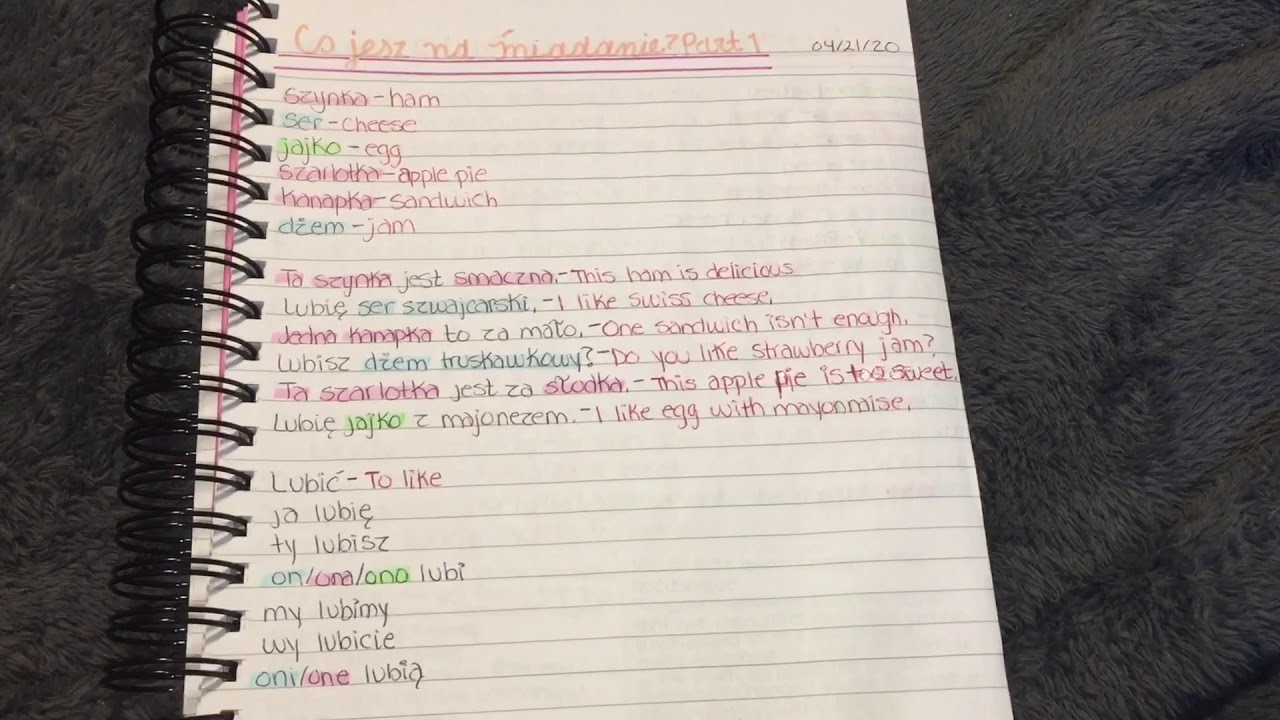 Co jesz na śniadanie? Part 1 04/21/20
szynka - ham
ser - cheese
jajko - egg
szarlotka - apple pie
kanapka - sandwich
dżem - jam
Ta szynka jest smaczna. - This ham is delicious
Lubię ser szwajcarski. - I like swiss cheese.
Jedna kanapka to za mało. - One sandwich isn't enough.
Lubisz dżem truskawkowy? - Do you like strawberry jam?
Ta szarlotka jest za słodka. - This apple pie is too sweet.
Lubię jajko z majonezem. - I like egg with mayonnaise.
Lubić - To like
ja lubię
ty lubisz
on/ona/ono lubi
my lubimy
wy lubicie
oni/one lubią